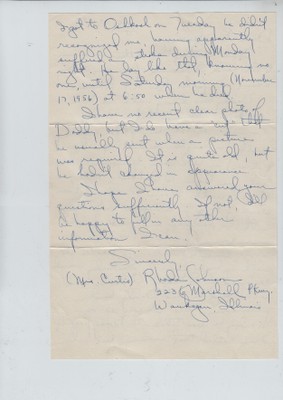 I got to Oakland on Tuesday he didn't
recognize me, having apparently
suffered a stroke during Monday
night. He lay like that, knowing no
one, until Saturday morning (November
17, 1956) at 6:50 when he died.
I have no recent close photo of
Daddy, but I do have a cut that
he usually sent when a picture
was required. It is quite old, but
he hadn't changed in appearance.
I hope I have answered your
questions sufficiently. If not, I'll
be happy to fill in any other
information I can.
Sincerely,
(Mrs. Curtis) Rhoda Johnson
2236 Marshall Pkwy.
Waukegan, Illinois